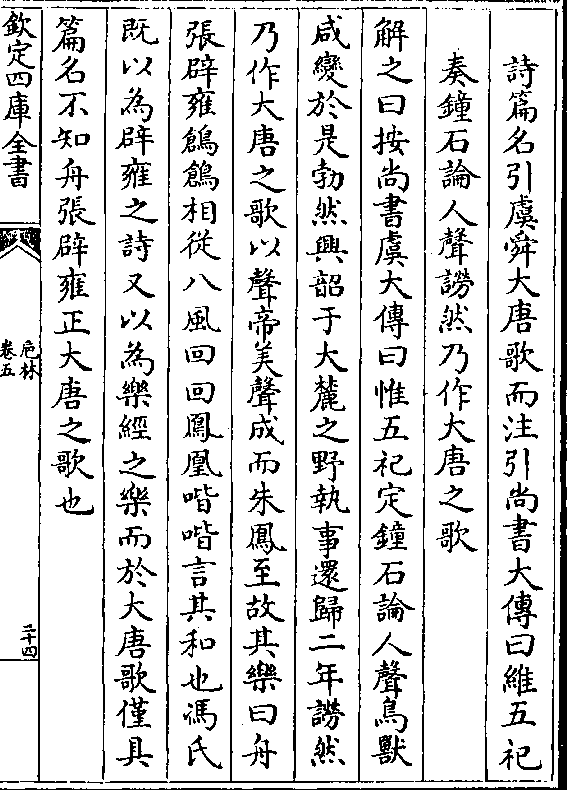 詩篇名引虞舜大唐歌而注引尚書大傳曰維五祀
奏鐘石論人聲謗然乃作大唐之歌
解之曰按尚書虞大傳曰惟五祀定鐘石論人聲鳥獸
咸變於是勃然興韶于大麓之野執事還歸二年謗然
乃作大唐之歌以聲帝美聲成而朱鳳至故其樂曰舟
張辟雍鶬鶬相從八風回回鳳凰喈喈言其和也馮氏
既以為辟雍之詩又以為樂經之樂而於大唐歌僅具
篇名不知舟張辟雍正大唐之歌也
欽定四庫全書
卮林
卷五
三十四